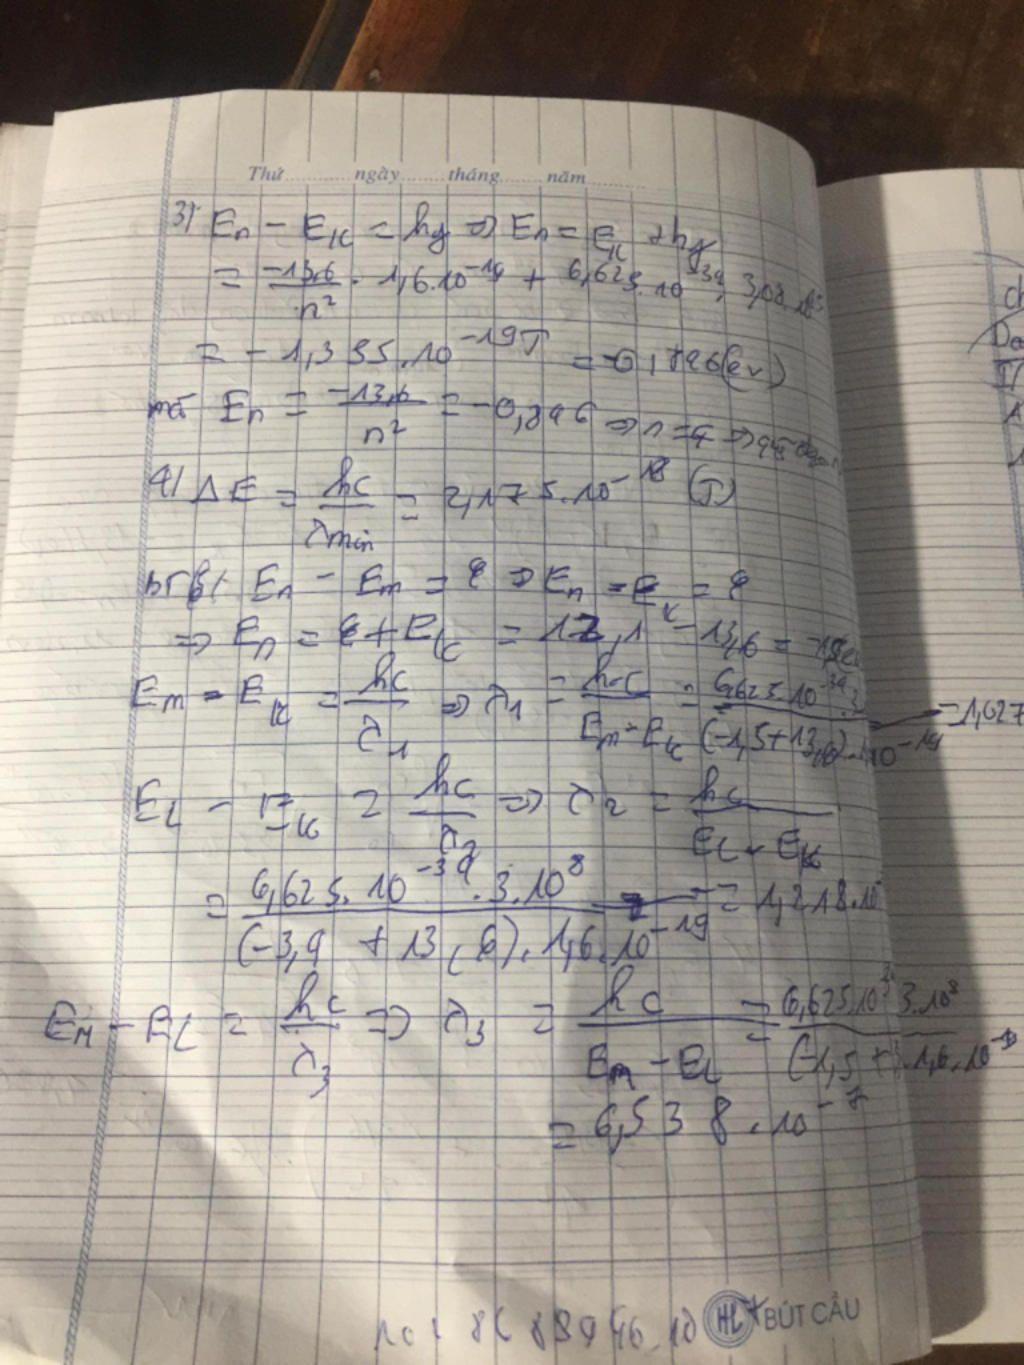 Thứ.........ngày.......tháng.......năm.........
3) En - EK = hf => En = EK + hf
= -13,6/n² . 1,6.10⁻¹⁹ + 6,625.10⁻³⁴. 3,08.10
= -1,355.10⁻¹⁹J = -0,846(ev)
mà En = -13,6/n² = -0,846 => n = 4 =>
4) ΔE = hc/λmin = 2,175.10⁻¹⁸ (J)
En - Em = ε => En - EK = ε
=> En = ε + EK = 12,1 - 13,6 = -1,5ev
Em - EK = hc/λ1 => λ1 = h.c/(Em - EK) = 6,625.10⁻³⁴.3/(-1,5+13,6). 10⁻¹⁹ = 1,027
EL - EK = hc/λ2 => λ2 = hc/(EL - EK)
= 6,625.10⁻³⁴.3.10⁸/(-3,4 + 13,6).1,6.10⁻¹⁹ = 1,218.10
EM - EL = hc/λ3 => λ3 = hc/(Em - EL) = 6,625.10 3.10⁸/(-1,5 + .1,6.10
= 6,538.10⁻⁷
HL BÚT CẦU